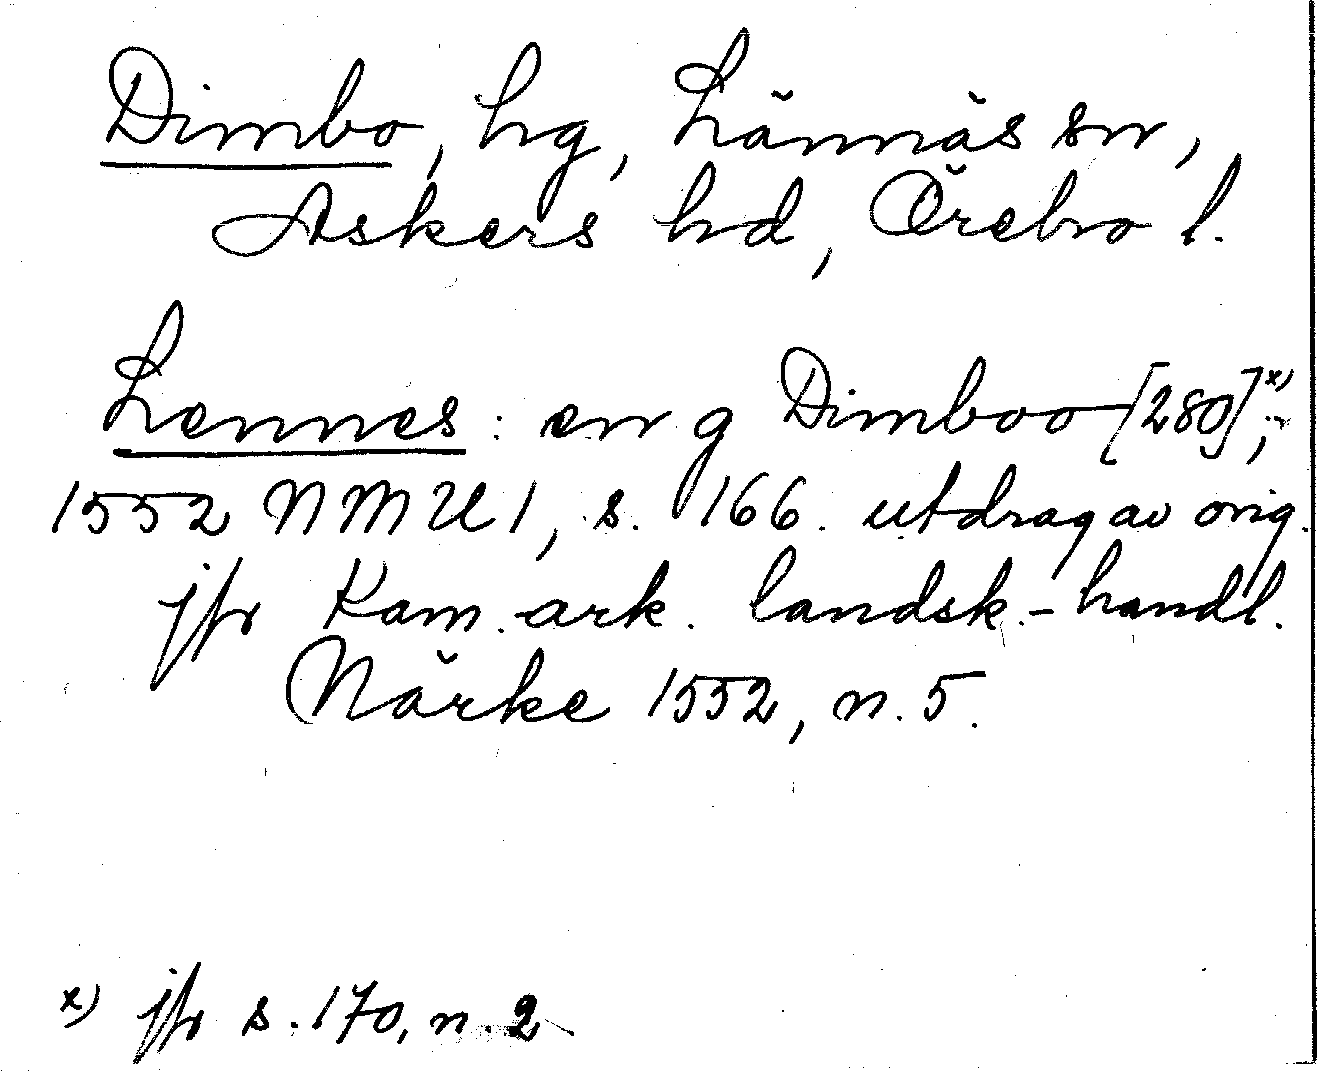 Dimbo, hg, Lännäs sn,
Askers hd, Örebro l.
Lennes: en g Dimboo [280]x);
1552 NMU 1, s. 166. utdrag av orig.
jfr Kam. ark. landsk.-handl.
Närke 1552, n. 5.
x) jfr s. 170, n. 2